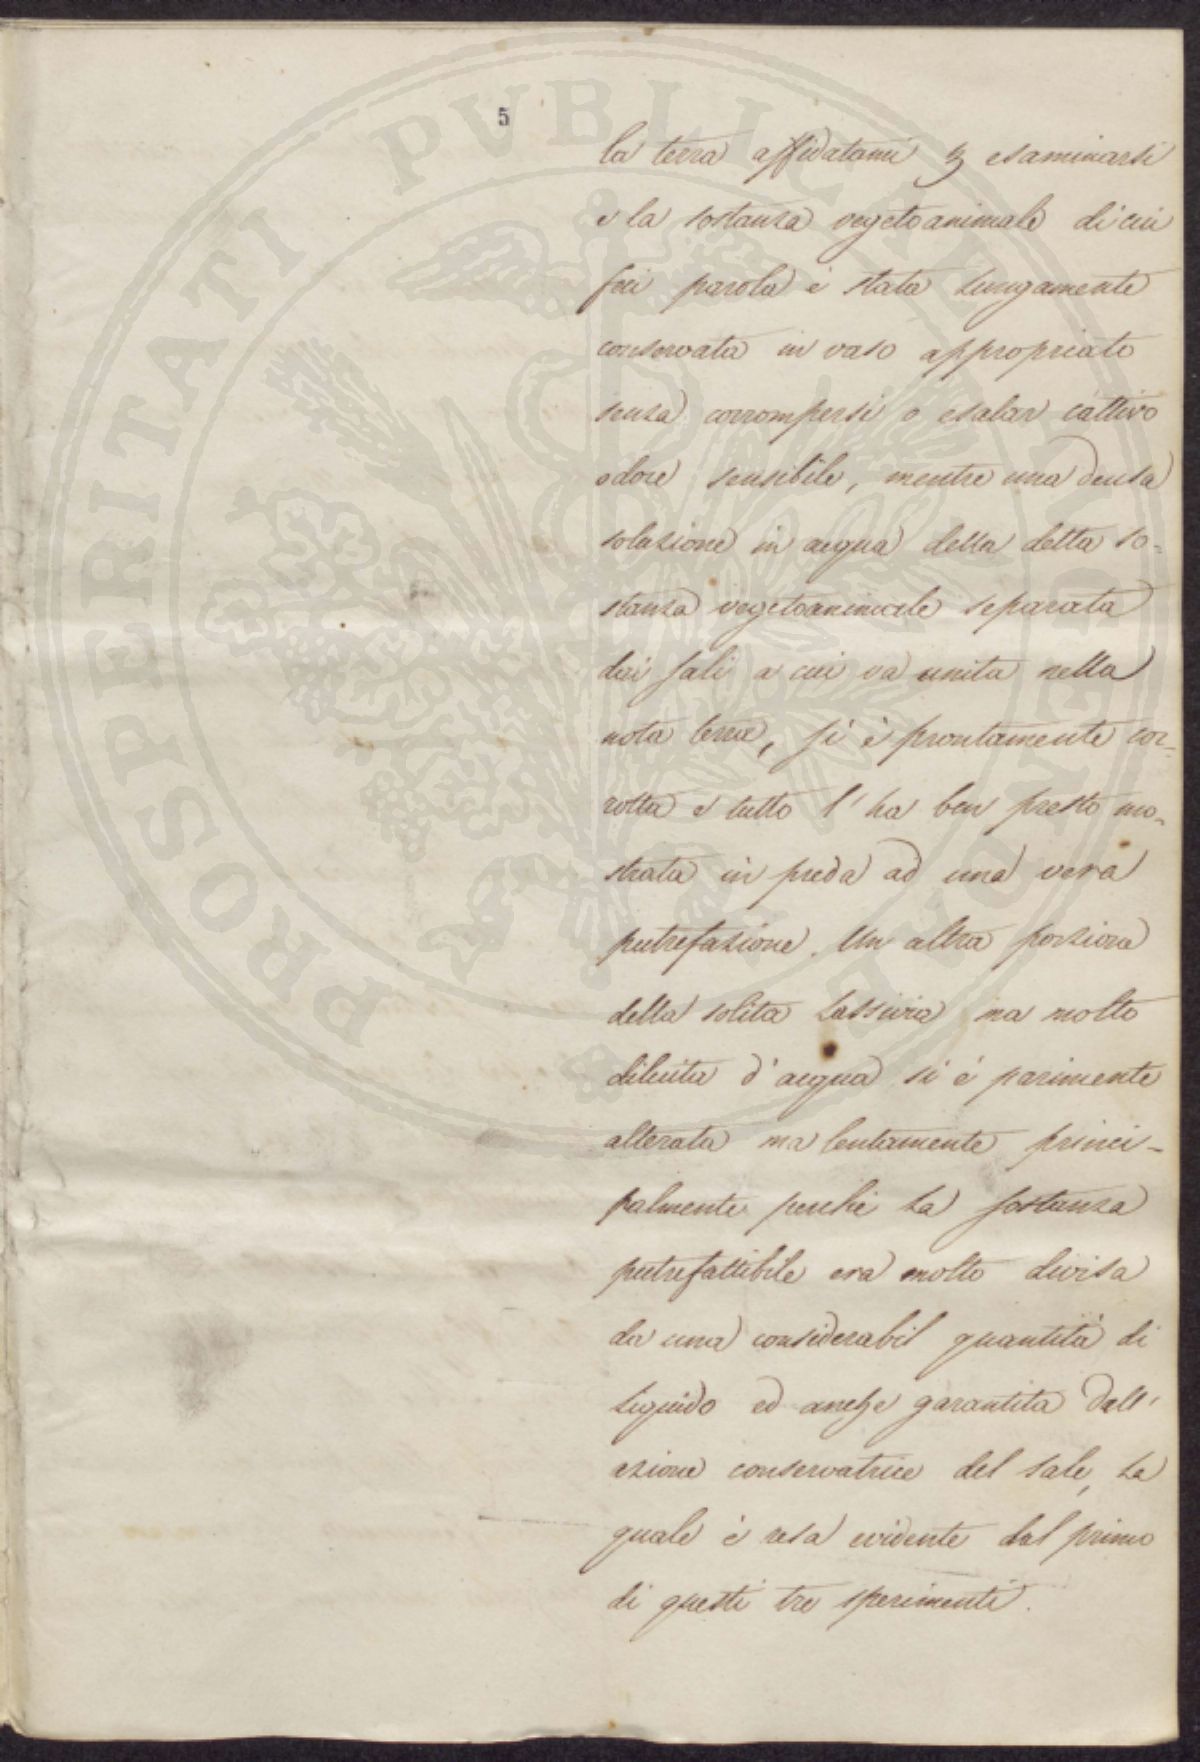 5
la terra affidatami p esaminarsi
e la sostanza vegetoanimale di cui
feci parola è stata lungamente
conservata in vaso appropriato
senza corrompersi o esalar cattivo
odore sensibile, mentre una densa
soluzione in acqua della detta so=
stanza vegetoanimale separata
dai sali a cui va unita nella
nota terra, si è prontamente cor=
rotta e tutto l'ha ben presto mo=
strata in preda ad una vera
putrefazione. Un altra porzione
della solita Lassivia ma molto
diluita d'acqua si è parimente
alterata ma lentamente princi-
palmente perchè la sostanza
putrefattibile era molto divisa
da una considerabil quantità di
liquido ed anche garantita dall'
azione conservatrice del sale, la
quale è resa evidente dal primo
di questi tre sperimenti.
PROSPERITATI PVBLICAE AVGENDAE